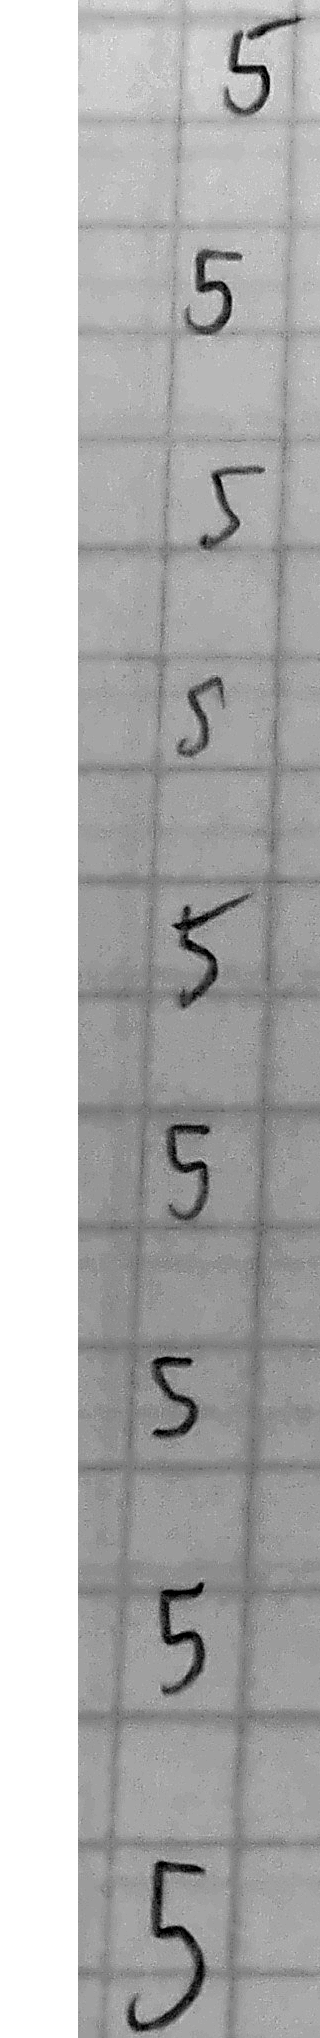 5
5
5
5
5
5
5
5
5